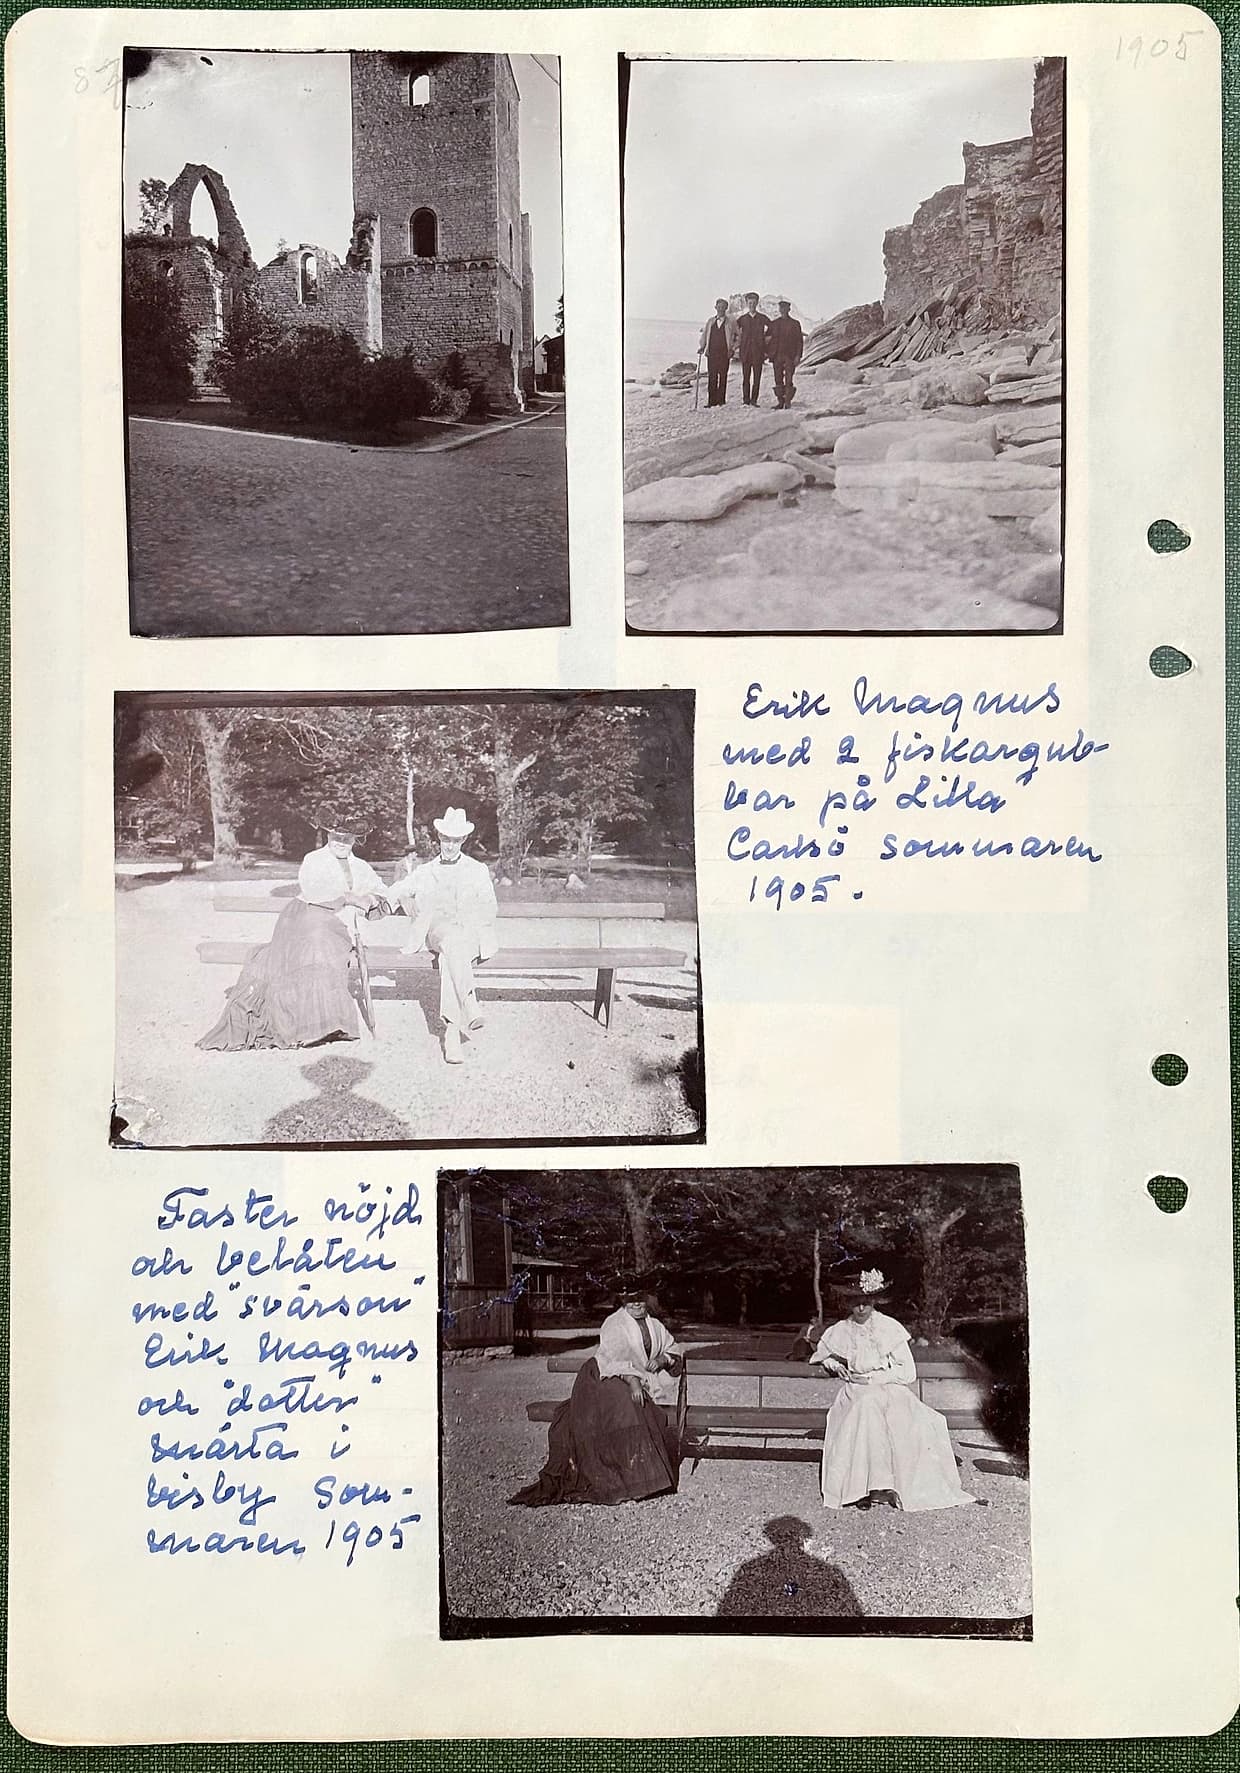 87
1905
Erik Magnus
med 2 fiskargub-
bar på Lilla
Carlsö sommaren
1905.
Faster nöjd
och belåten
med "svärson"
Erik Magnus
och "dotter"
Märta i
Visby Som-
maren 1905